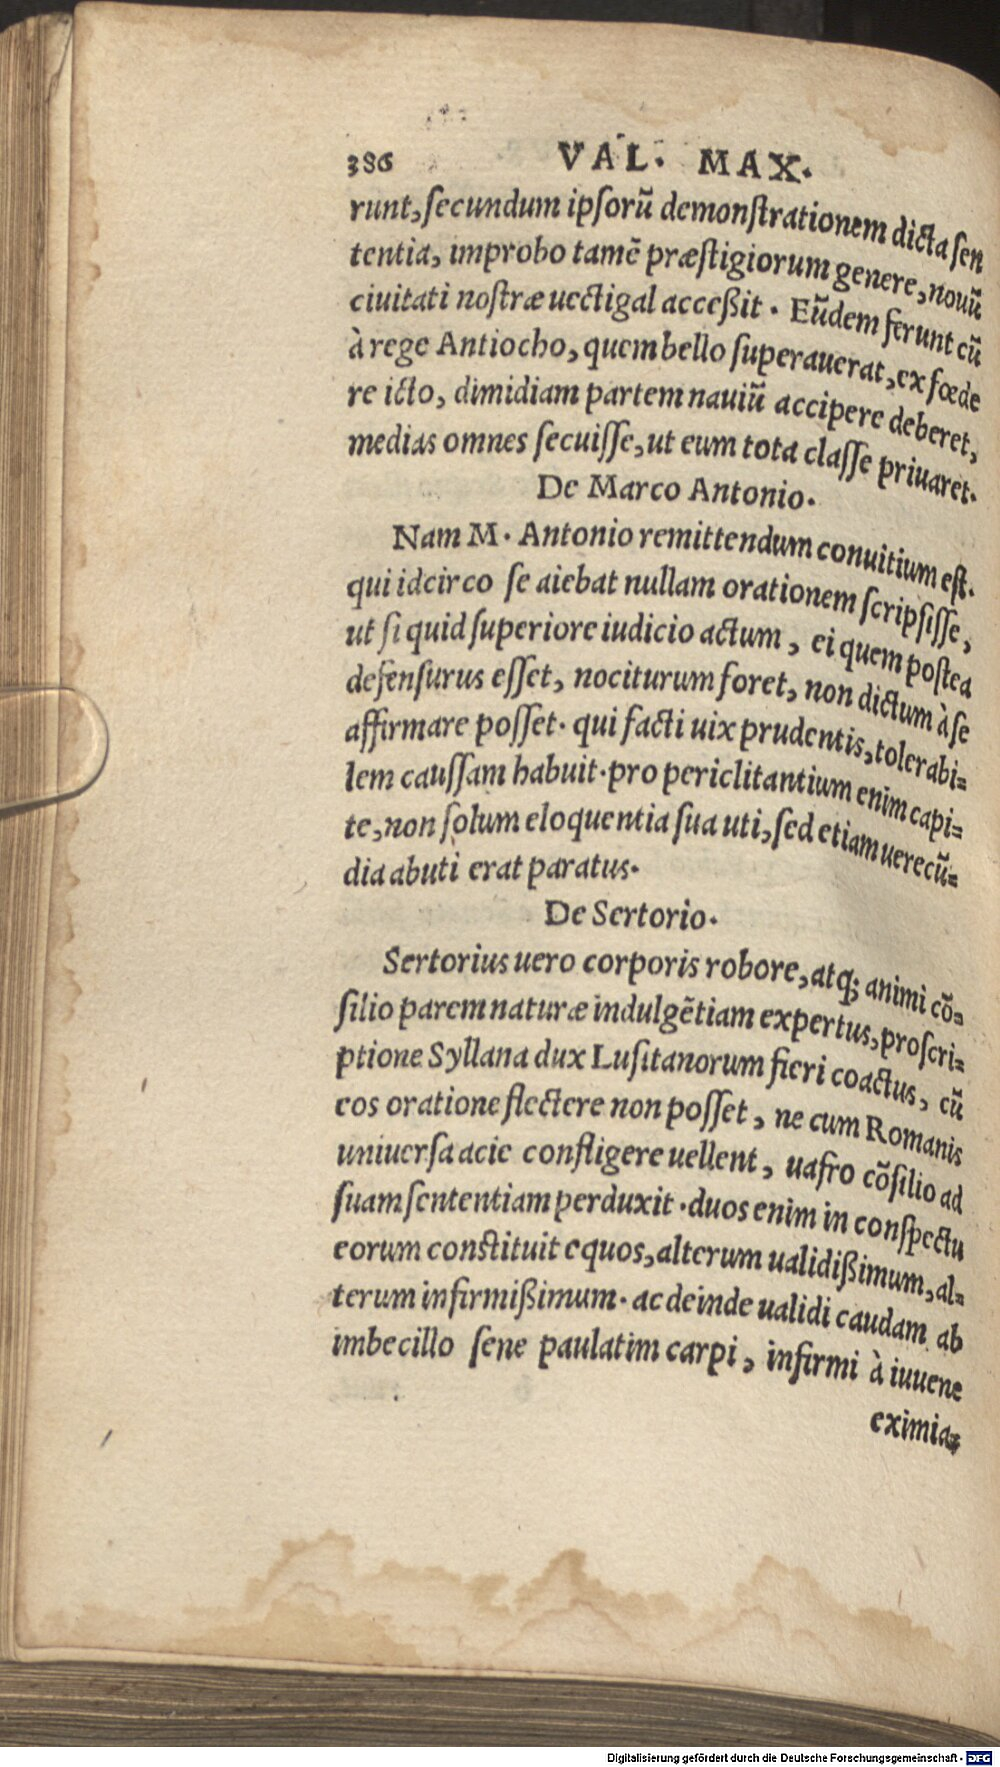 386 VAL. MAX.
runt, ſecundum ipſorũ demonſtrationem dicta ſen
tentia, improbo tamẽ præſtigiorum genere, nouũ
ciuitati noſtræ uectigal acceßit. Eũdem ferunt cũ
à rege Antiocho, quem bello ſuperauerat, ex fœde
re icto, dimidiam partem nauiũ accipere deberet,
medias omnes ſecuiſſe, ut eum tota claſſe priuaret.
De Marco Antonio.
Nam M. Antonio remittendum conuitium eſt.
qui idcirco ſe aiebat nullam orationem ſcripſiſſe,
ut ſi quid ſuperiore iudicio actum, ei quem poſtea
defenſurus eſſet, nociturum foret, non dictum à ſe
affirmare poſſet. qui facti uix prudentis, tolerabi-
lem cauſſam habuit. pro periclitantium enim capi-
te, non ſolum eloquentia ſua uti, ſed etiam uerecũ-
dia abuti erat paratus.
De Sertorio.
Sertorius uero corporis robore, atq; animi cõ-
ſilio parem naturæ indulgẽtiam expertus, proſcri-
ptione Syllana dux Luſitanorum fieri coactus, cũ
eos oratione flectere non poſſet, ne cum Romanis
uniuerſa acie confligere uellent, uafro cõſilio ad
ſuam ſententiam perduxit. duos enim in conſpectu
eorum conſtituit equos, alterum ualidißimum, al-
terum infirmißimum. ac deinde ualidi caudam ab
imbecillo ſene paulatim carpi, infirmi à iuuene
eximiæ
Digitalisierung gefördert durch die Deutsche Forschungsgemeinschaft - DFG